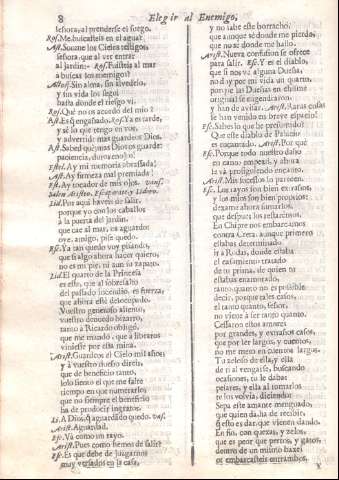 8 Elegir al Enemigo,
señora, al prenderse el fuego.
Ros. Me buscasteis en el agua?
Ast. Soume los Cielos testigos,
señora, que al ver entrar
al jardin-. Ros. Fuisteis al mar
a buscar los enemigos?
Astolf. Sin alma, sin alvedrio,
y sin vida los seguí
hasta donde el riesgo vi.
Ros. Què no os acordò del mio?
Ast. Es engañado. Ros. Ya es tarde,
y sè lo que tengo en vos,
y advertid mas guardeos Dios.
Ast. Sabed què mas Dios os guarde:
paciencia,
Estel. Ay mi memoria abrasada!
Ast. Ay firmeza mal premiada!
Est. Ay tocador de mis ojos. vans.
Salen Aristeo, Escaparate, y Lidoro.
Lid. Por aqui haveis de salir,
porque yo con los caballos
à la puerta del jardin,
que cae al mar, os aguardo:
oye, amigo, pisa quedo.
Esc. Ya tan quedo voy pisando,
que si algo ahora hacer quiero,
no es mi pie, ni aun tu zapato.
Lid. El quarto de la Princesa
es este, que al sobresalto
del passado incendio, es fuerza,
que ahora estè desocupado.
Vuestro generoso aliento,
vuestro denuedo bizarro,
tanto à Ricardo obligò,
que me mandò, que à libraros
viniesse por esta mina.
Arist. Guardeos el Cielo mil años;
y à vuestro dueño direis,
que de beneficio tanto,
solo siento el que me falte
tiempo en que numerarlo;
que no siempre el beneficio
ha de producir ingratos.
Li. A Dios, q aguardado quedo. vas.
Arist. Aguardad.
Esc. Và como un rayo.
Arist. Pues como hemos de salir?
Esc. Es que debe de juzgarnos
muy versados en la casa,
y no sabe este borracho,
que aunque sè donde me pierdo,
que no sè donde me hallo.
Arist. Nueva confusion se ofrece
para salir. Esc. Y es el diablo,
que si nos vè alguna Dueña,
no doy por mi vida un quarto,
porque las Dueñas en chisme
original se engendraron,
y han de avisar. Arist. Raras cosas
se han venido en breve espacio!
Esc. Sabes lo que he presumido?
Que este diablo de Palacio
es encantado. Arist. Por què?
Esc. Porque todo nuestro daño
en canto empezò, y ahora
la và prosiguiendo encanto.
Arist. Mis sucessos lo parecen.
Esc. Los tuyos son bien estraños,
y los mios son bien propios:
dexame ahora sumarlos,
que despues los restarèmos.
En Chipre nos embarcamos
contra Creta, aunque primero
estabas determinado
ir à Rodas, donde estaba
el casamiento tratado
de tu prima, de quien tù
estabas enamorado,
tanto, quanto no es possible
decir, porque tales casos,
el tanto quanto, señor,
no viene à ser tanto quanto.
Cessaron estos amores
por grandes, y estraños casos,
que por ser largos, y cuentos,
no me meto en cuentos largos.
Tu zeloso de ella, y ella
de tì al vengarse, buscando
ocasiones, tu le dabas
pesares, y ella al tomarlos
te los volvia, diciendo:
Sepa este amante menguado,
que quien da, ha de recibir,
q esto es dar, que vienen dando.
En fin, con quexas, y zelos,
que es peor que perros, y gatos,
dentro de un mismo baxel
os embarcasteis entrambos,